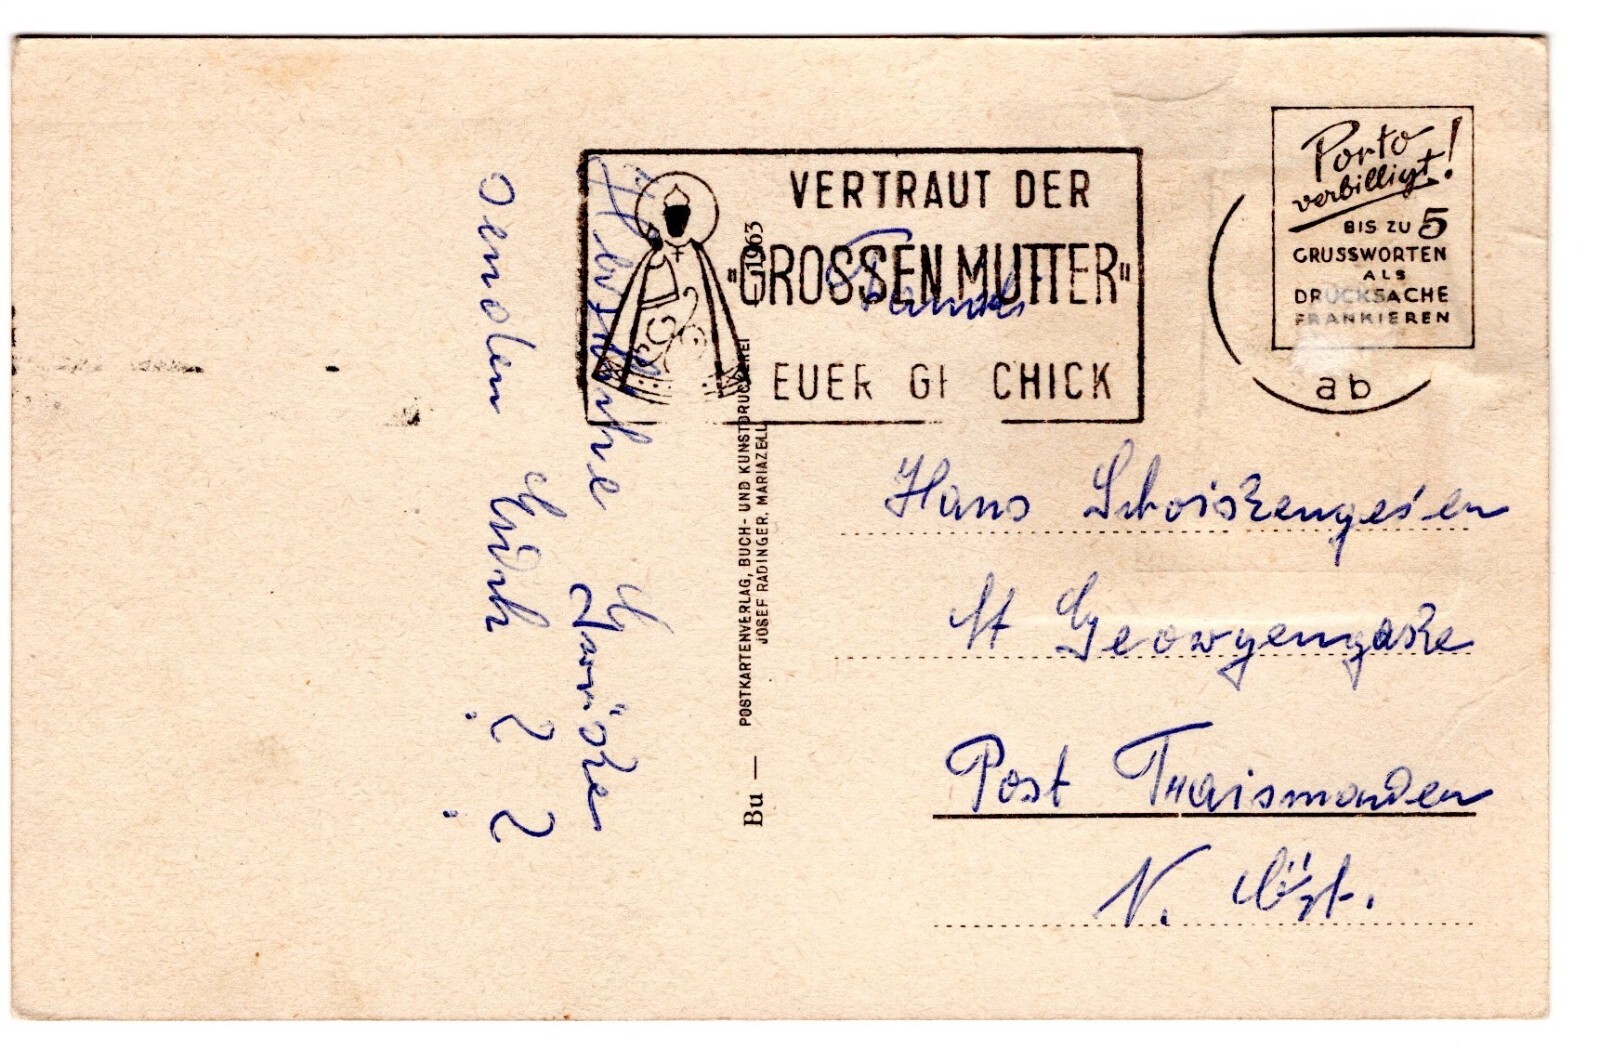 VERTRAUT DER
"GROSSEN MUTTER"
EUER CHICK
Porto
verbilligt!
BIS ZU 5
GRUSSWORTEN
ALS
DRUCKSACHE
FRANKIEREN
ab
Grüsse
senden Euch
Bu — POSTKARTENVERLAG, BUCH- UND KUNSTDRUCKEREI — 1963
JOSEF RADINGER, MARIAZELL
Hans
St Georgengasse
Post Traismauer
N. Öst.